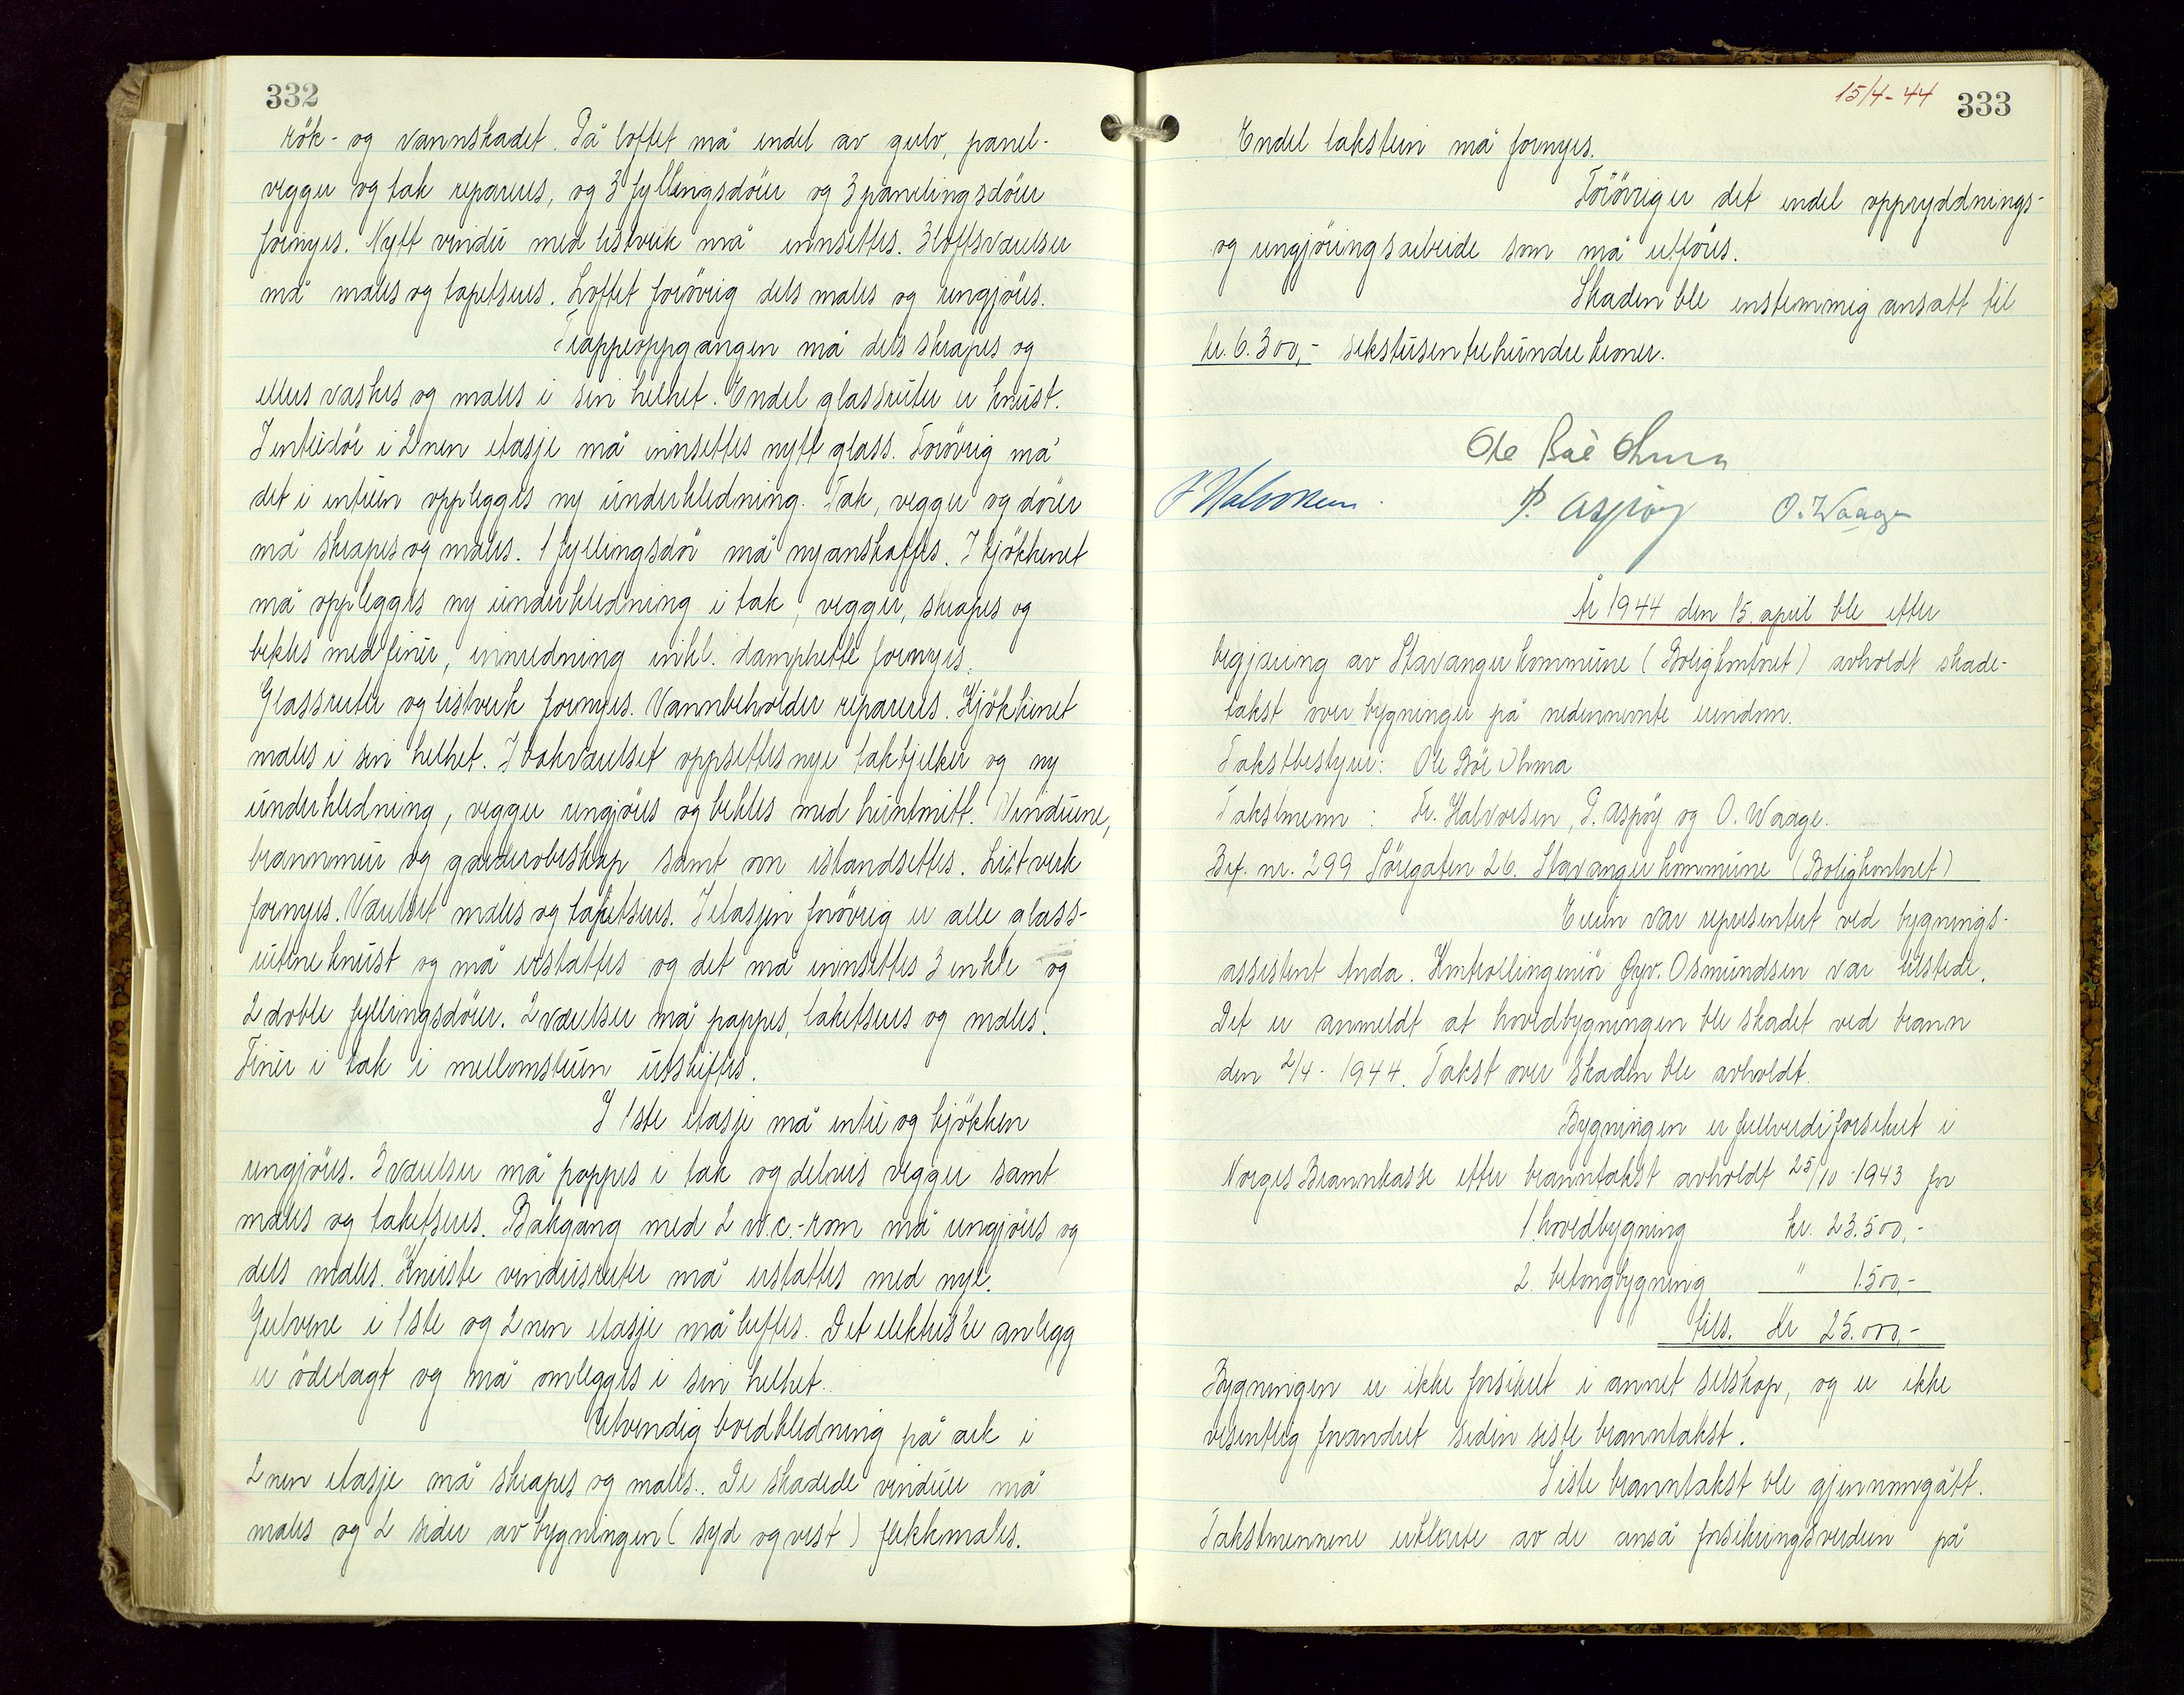 332
rök- og vannskadet. På loftet må endel av gulv, panel-
vegger og tak repareres, og 3 fyllingsdörer og 3 panelingsdörer
fornyes. Nytt vindu med listverk må innsettes. 3 loftsværelser
må males og tapetseres. Loftet forövrig dels males og rengjöres.
Trappeoppgangen må dels skrapes og
ellers vaskes og males i sin helhet. Endel glassruter er knust.
I entredör i 2nen etasje må innsettes nytt glass. Forövrig må
det i entreen opplegges ny underkledning. Tak, vegger og dörer
må skrapes og males. 1 fyllingsdör må nyanskaffes. I kjökkenet
må opplegges ny underkledning i tak, vegger, skrapes og
bekles med finér, innredning inkl. damphette fornyes.
Glassruter og listverk fornyes. Vannbeholder repareres. Kjökkenet
males i sin helhet. I bakværelset oppsettes nye takbjelker og ny
underkledning, vegger rengjöres og bekles med huntonitt. Vinduene,
brannmur og garderobeskap samt ovn istandsettes. Listverk
fornyes. Værelset males og tapetseres. I etasjen forövrig er alle glass-
rutene knust og må erstattes og det må innsettes 3 enkle og
2 doble fyllingsdörer. 2 værelser må pappes, taketseres og males.
Finér i tak i mellomstuen utskiftes.
I 1ste etasje må entré og kjökken
rengjöres. 3 værelser må pappes i tak og delvis vegger samt
males og taketseres. Bakgang med 2 w.c.-rom må rengjöres og
dels males. Knuste vindusruter må erstattes med nye.
Gulvene i 1ste og 2nen etasje må luftes. Det elektriske anlegg
er ödelagt og må omlegges i sin helhet.
Utvendig bordkledning på ark i
2nen etasje må skrapes og males. De skadede vinduer må
males og 2 sider av bygningen (syd og vest) flekkmales.
15/4-44 333
Endel takstein må fornyes.
Forövrig er det endel oppryddnings-
og rengjöringsarbeide som må utföres.
Skaden ble enstemmig ansatt til
kr. 6.300,- sekstusentrehundre kroner.
Ole Böe
Halvorsen P. Aspöy O. Waage
År 1944 den 15. april ble etter
begjæring av Stavanger kommune (Boligkontoret) avholdt skade-
takst over bygninger på nedennevnte eiendom.
Takstbestyrer: Ole Böe
Takstmenn: Fr. Halvorsen, P. Aspöy og O. Waage.
Brf. nr. 299 Söregaten 26. Stavanger kommune (Boligkontoret)
Eieren var representert ved bygnings-
assistent Anda. Kontrollingeniör Gyv. Osmundsen var tilstede.
Det er anmeldt at hovedbygningen ble skadet ved brann
den 2/4-1944. Takst over skaden ble avholdt.
Bygningen er fullverdiforsikret i
Norges Brannkasse etter branntakst avholdt 25/10-1943 for
1. hovedbygning kr. 23.500,-
2. betongbygning " 1.500,-
tils. Kr 25.000,-
Bygningen er ikke forsikret i annet selskap, og er ikke
vesentlig forandret siden siste branntakst.
Siste branntakst ble gjennomgått.
Takstmennene erklærte av de anså forsikringsverdien på